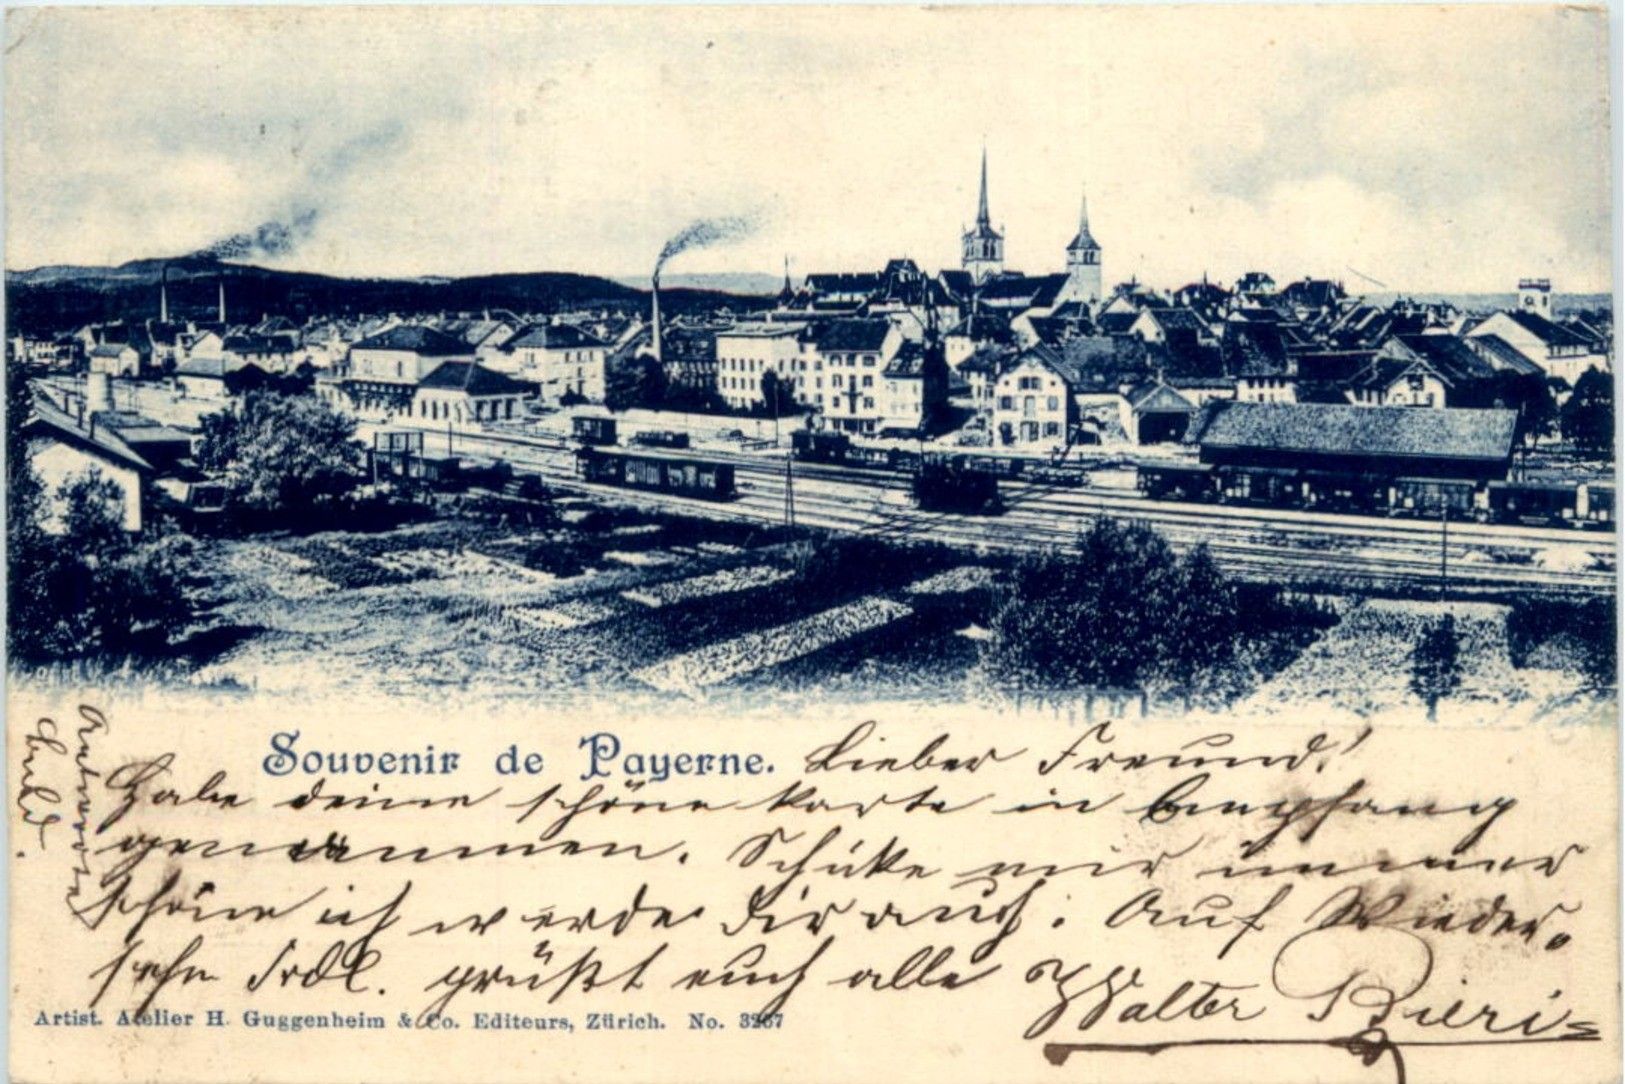 Souvenir de Payerne.
Lieber Freund!
Habe deine schöne Karte in Empfang
genommen. Schike mir immer
schöne ich werde dir auch. Auf Wieder-
sehn Frdl. grüßt euch alle
Walter Bieri
Antworte
bald.
Artist. Atelier H. Guggenheim & Co. Editeurs, Zürich. No. 3267